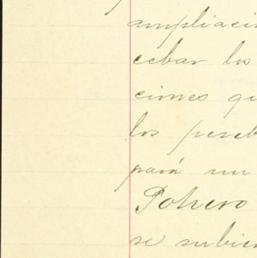 ampliació
cebar los
ciones qu
los pese
para un
Potrero
se subie